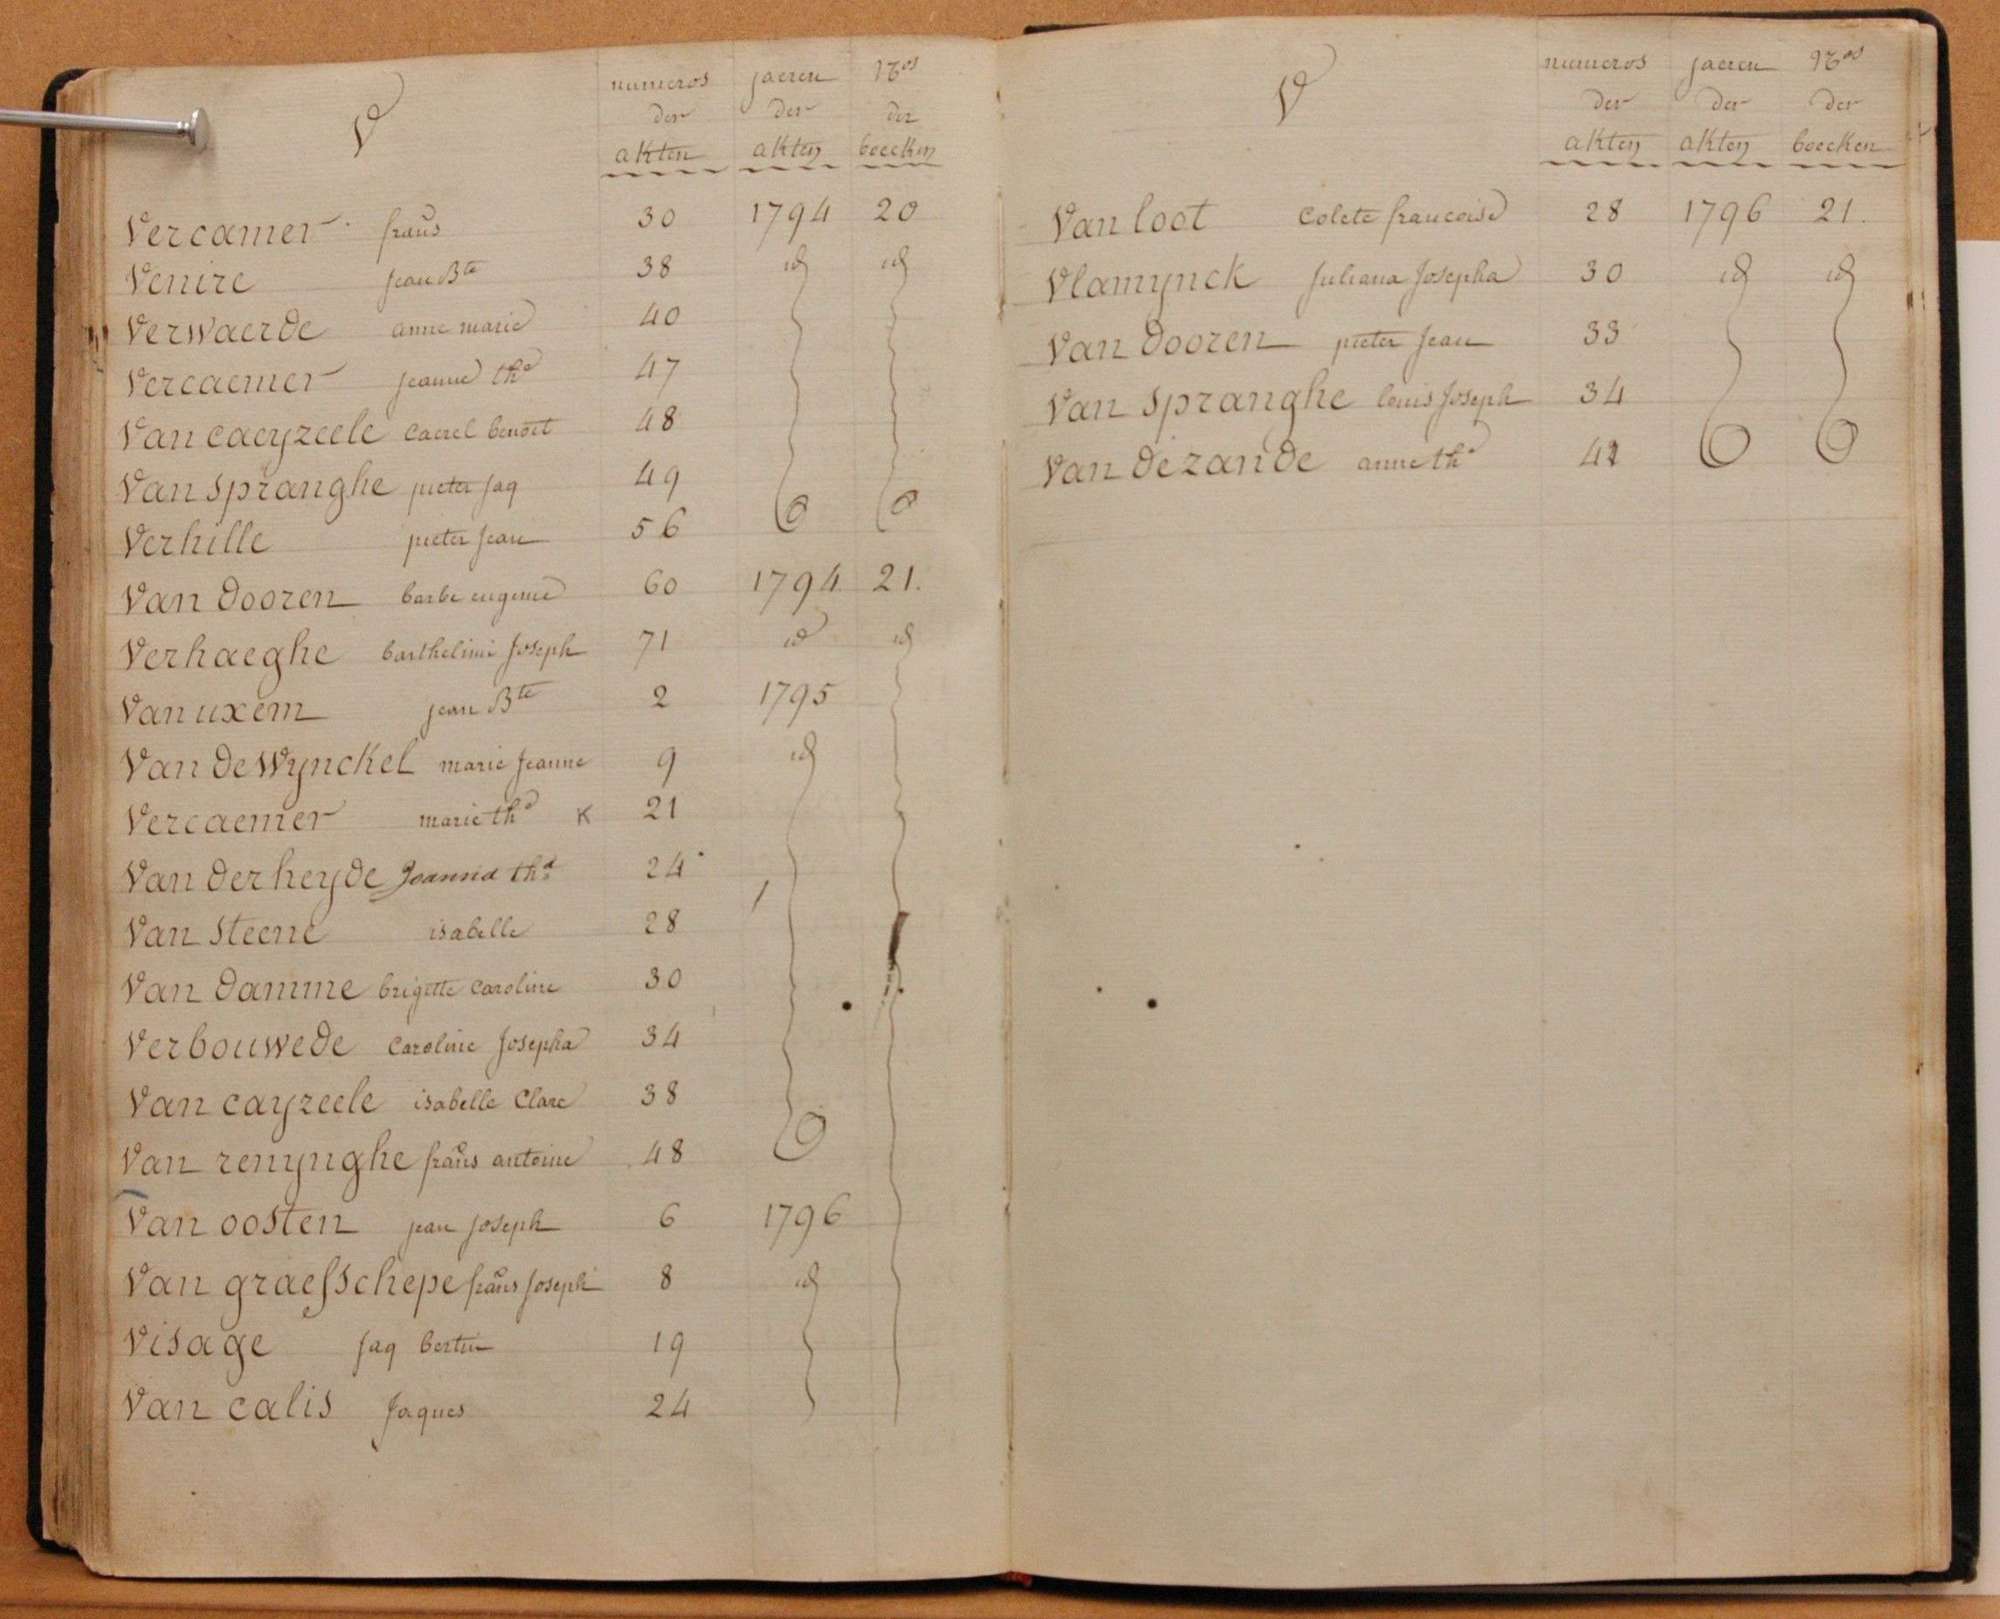 V numeros jaeren Nos
der der der
akten akten boecken
Vercamer frans 30 1794 20
Venire jean Bte 38 id id
Verwaerde anne marie 40
Vercaemer jeanne the 47
Van caeyzeele Caerel benoit 48
Van spranghe pieter jaq 49
Verhille pieter jean 56
Van dooren barbe eugenie 60 1794 21.
Verhaeghe barthelimi joseph 71 id id
Van uxem jean Bte 2 1795
Van de Wynckel marie jeanne 9 id
Vercaemer marie the K 21
Van der heyde Joanna tha 24
Van steene isabelle 28
Van damme brigitte Caroline 30
Verbouwede Caroline Josepha 34
Van cayzeele isabelle Clare 38
Van renynghe frans antoine 48
Van oosten jean joseph 6 1796
Van graefschepe frans joseph 8 id
Visage jaq bertin 19
Van calis Jaques 24
V numeros jaeren Nos
der der der
akten akten boecken
Van loot Colete francoise 28 1796 21.
Vlamynck Juliana Josepha 30 id id
Van dooren pieter Jean 33
Van spranghe louis Joseph 34
Van dezande anne the